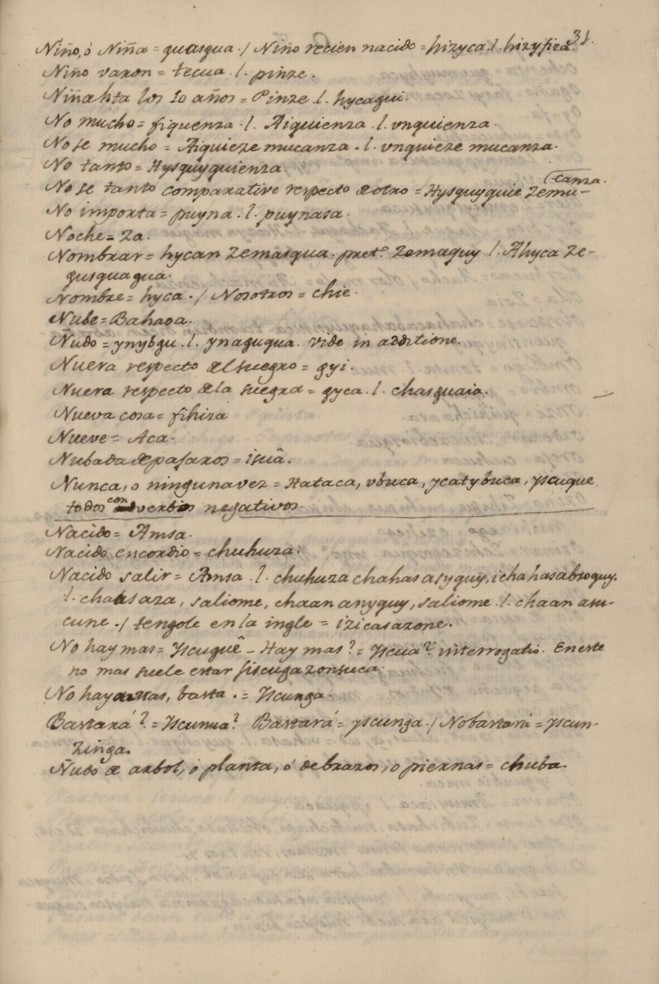 31.
Niño, ó Niña = guasgua. / Niño recien nacido = hizyca. l. hizyfiza.
Niño varon = tecua. l. pinze.
Niña hta los 10 años = Pinze. l. hycagui.
No mucho = fiquenza. l. Aiquienza. l. vnquienza.
No se mucho = Aiquieze mucanza. l. vnquieze mucanza.
No tanto = Hysquyquienza
No se tanto comparative respecto de otro = Hysquyquie zemu-
canza.
No importa = puyna. l. puynasa.
Noche = Za.
Nombrar = hycan zemasqua. pret.o zemaquy l. Ahyca ze-
gusquagua.
Nombre = hyca. / Nosotros = chie.
Nube = Bahaoa.
Ñudo = ynybgu. l. ynaguqua. vide in additione.
Nuera respecto del suegro = gyi.
Nuera respecto de la suegra = gyca. l. chasguaia.
Nueva cosa = fihiza
Nueve = Aca.
Nubada de pajaros = isuâ.
Nunca, o ninguna vez = Hataca, vbuca, ycatybuca, yscuque
todos con verbos negativos.
Nacido = Amsa.
Nacido encordio = chuhuza.
Nacido salir = Amsa. l. chuhuza chahas asyquy, i chahasabzoquy.
l. chahas aza, saliome, chaan anyquy, saliome. l. chaan asu-
cune. / tengole en la ingle = izicasazone.
No hay mas = Yscuguê - Hay mas? = Yscua? interrogatio. En este
no mas suele estar siscuga zonsuca.
No hay mas, basta. = Yscunga.
Bastará? = Yscunua? Bastará = yscunga. / No bastará = yscun-
zinga.
Ñudo de arbol, ó planta, ó de brazos, o piernas = chuba.